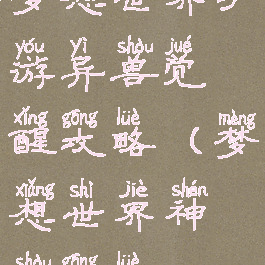 梦想世界手
yóu yì shòu jué
游异兽觉
xǐng gōng lüè mèng
醒攻略（梦
xiǎng shì jiè shén
想世界神
shòu gōng lüè